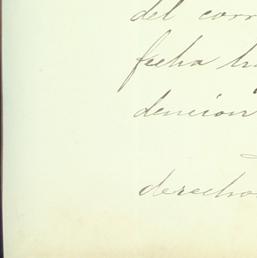 del corr
fecha h
dencion
derecho